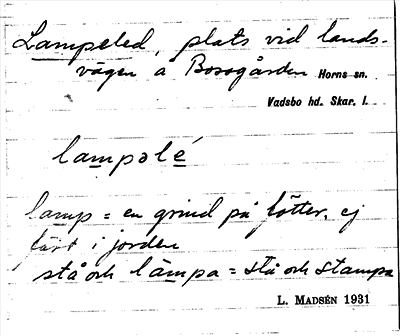 Lampeled, plats vid lands-
vägen å Bosogården Horns sn.
Vadsbo hd. Skar. l.
lampəlé
lamp = en grind på fötter, ej
fäst i jorden
stå och lampa = stå och stampa
L. MADSÉN 1931